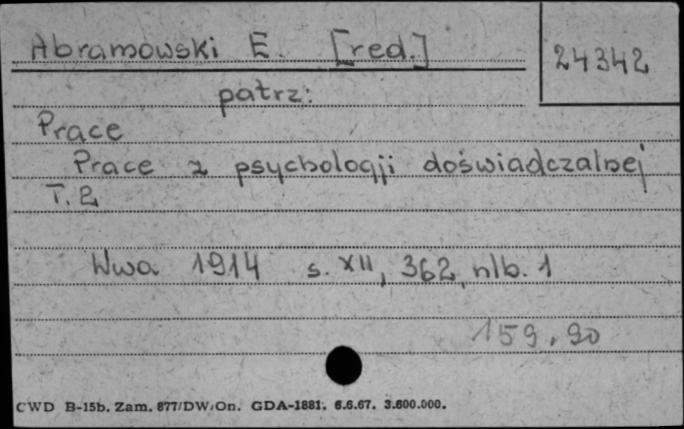 Abramowski E. [red.]
24342
patrz:
Prace
Prace z psychologji doświadczalnej
T. 2
Wwa 1914 s. XII, 362, nlb. 1
159.90
CWD B-15b. Zam. 877/DW/On. GDA-1881. 6.6.67. 3.600.000.